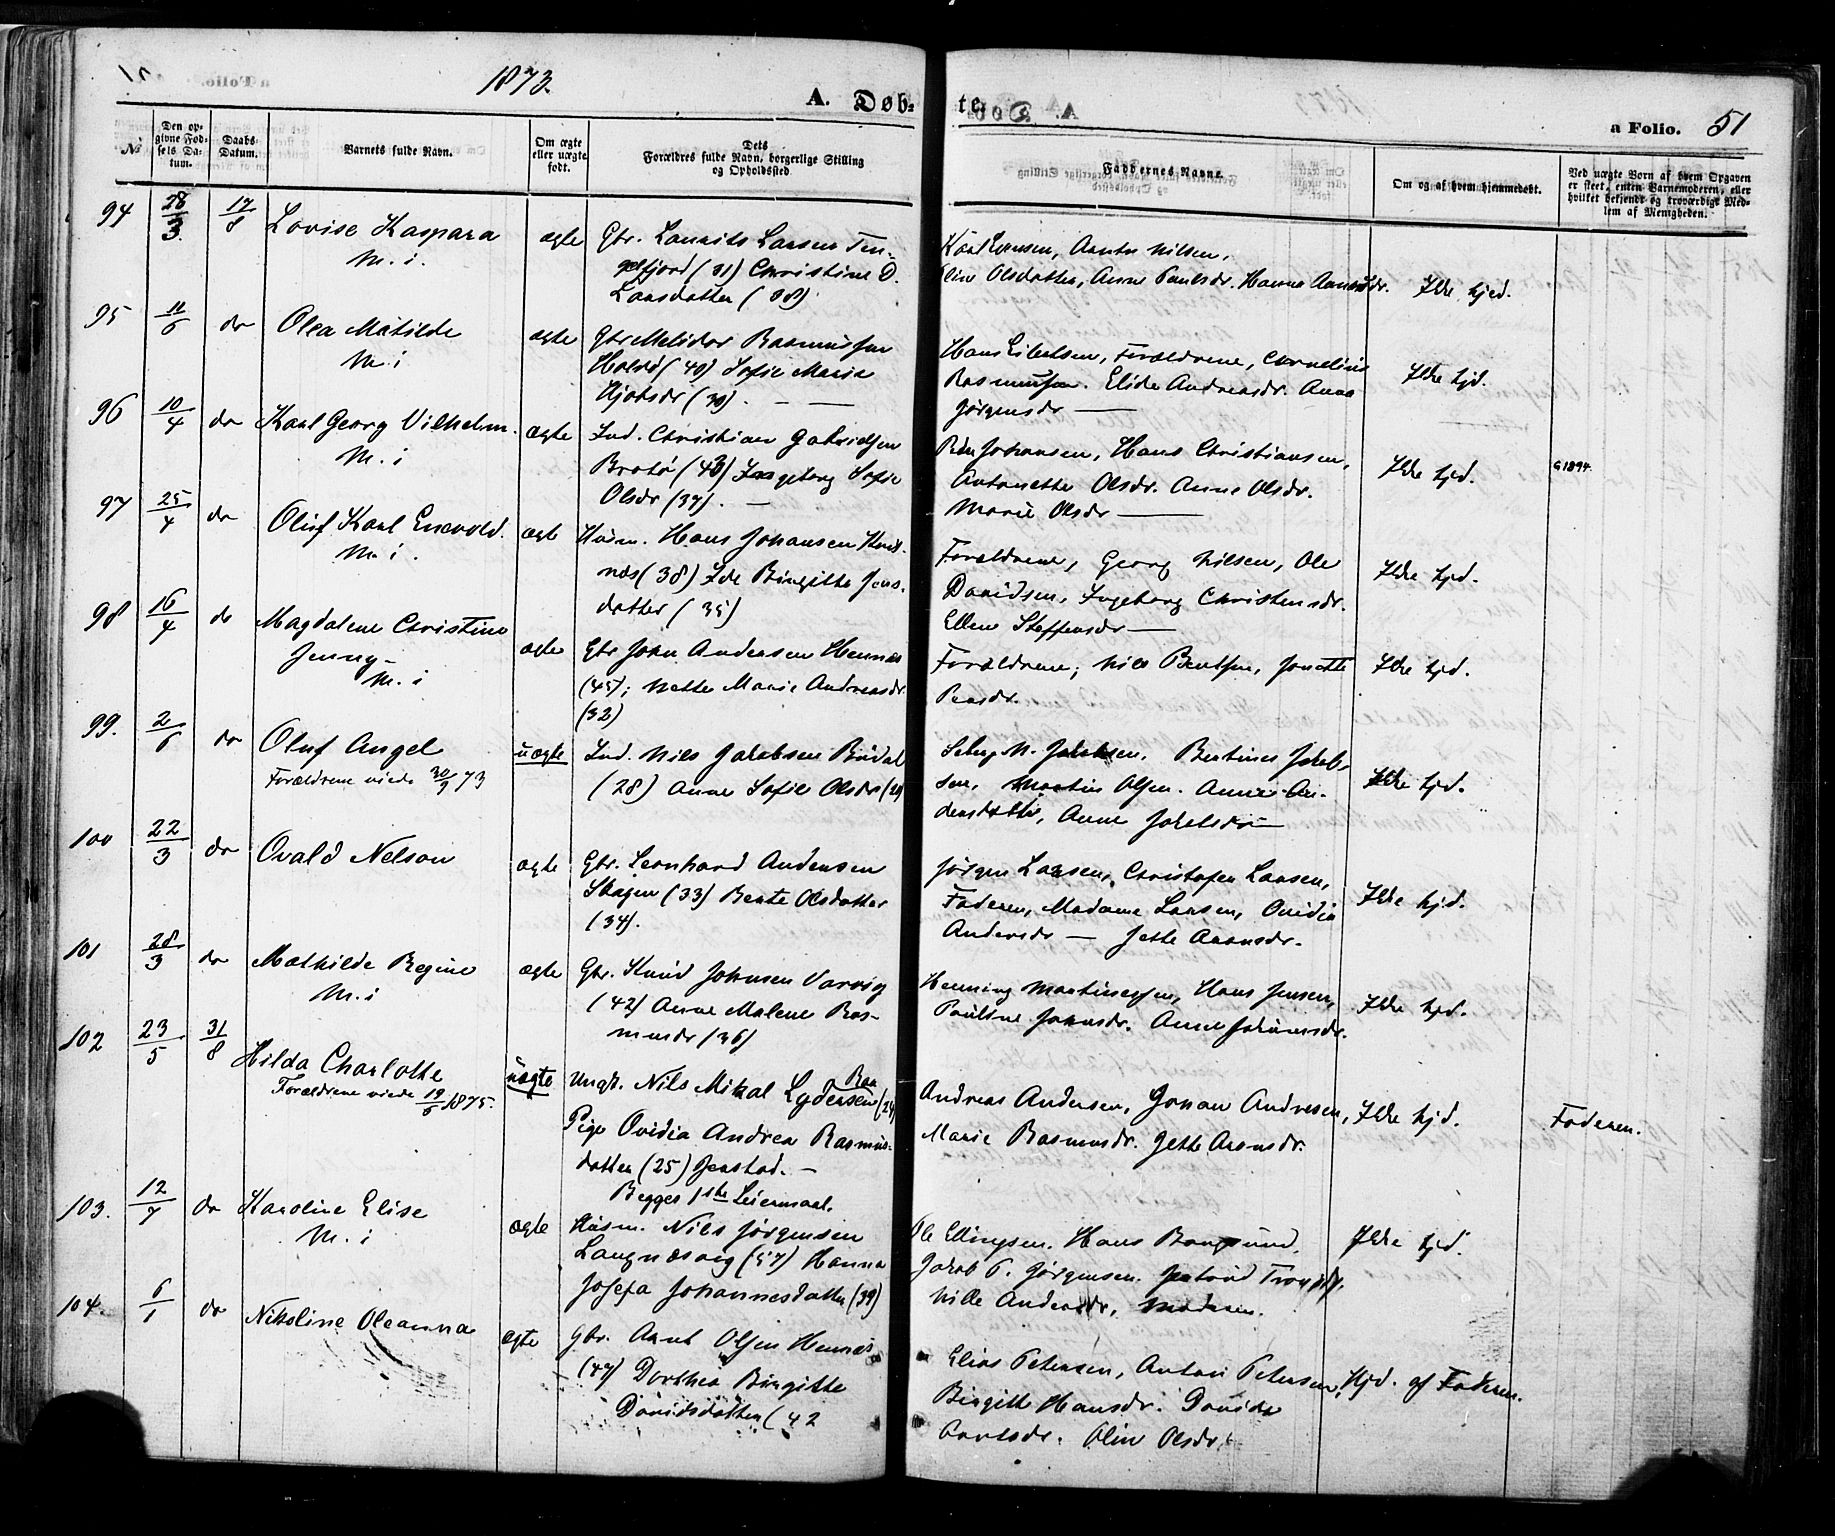 1873.
A. Døb-
te.
a Folio. 51
No
Den op-
givne Fød-
sels Da-
tum.
Daabs-
Datum.
Barnets fulde Navn.
Om ægte
eller uægte
født.
Dets
Forældres fulde Navn, borgerlige Stilling
og Opholdssted.
Faddernes Navne.
Om og af hvem hjemmedøbt.
Ved uægte Børn af hvem Opgaven
er skeet, enten Barnemoderen, eller
hvilket bekjendt og troværdigt Med-
lem af Menigheden.
94 28/3 17/8 Lovise Kaspara
M. i.
ægte Gbr. Laurits Larsen Ten-
gelfjord (31) Christine D.
Larsdatter (38)
Nilsen,
Olin Olsdatter, Anne Paulsdr. Hanna
Ikke hjed.
95 11/6 do Olea Matilde
M. i
ægte Gbr Melidor Rasmussen
Holdø (40) Sofie Maria
Hjortsdr (30). — —
Hans Eibertsen, Forældrene, Cornelius
Rasmussen. Elida Andreasdr. Anna
Jørgensdr —
Ikke hjd.
96 10/4 do Karl Georg Vilhelm.
M. i
ægte Ind. Christian Gabrielsen
Brotø (40) Ingeborg Sofie
Olsdr (37). —
Peder Johansen, Hans Christiansen,
Antonette Olsdr. Anne Olsdr.
Marie Olsdr —
Ikke hjd.
G 1894.
97 25/4 do Oluf Karl Enevold.
M. i.
ægte Husm. Hans Johansen
næs (38) Ide Birgitte Jens-
datter (35)
Forældrene, Georg Nilsen, Ole
Davidsen, Ingeborg Christensdr.
Ellen Steffensdr —
Ikke hjd.
98 16/4 do Magdalene Christine
Jenny —
M. i
ægte Gbr John Andersen Hennes
(45); Nette Marie Andreasdr
(32)
Forældrene, Nils Bentsen, Jonette
Pensdr.
Ikke hjd.
99. 2/6 do Oluf Angel
Forældrene viede 30/9 73
uægte Ind. Nils Jakobsen Budal
(28) Anne Sofie Olsdr
M. Jakobsen. Bertines Jakob-
sen, Martin Olsen. Anne An-
dersdatter, Anne Jakobsdr —
Ikke hjd.
100 22/3 do Ovald Nelson
ægte Gbr. Leonhard Andersen
Skagen (33) Berte Olsdatter
(34).
Jørgen Larsen, Christofer Larsen,
Faderen, Madame Larsen, Ovidia
Andersdr — Jette Aronsdr.
Ikke hjd.
101 28/3 do Mathilde Regine
M. i
ægte Gbr. Knud Johnsen Varvig
(42) Anne Malene Ras-
musdr (36)
Henning Martinussen, Hans Jensen,
Pauline Johnsdr. Anne
Ikke hjd.
102 23/5 31/8 Hilda Charlotte
Forældrene viede 19/6 1875.
uægte Ungk. Nils Mikal Lydersen (24)
Pige Ovidia Andrea Rasmus-
datter (25) Jenstad. —
Begges 1ste Leiermaal.
Andreas Andersen, Johan Andresen,
Marie Rasmusdr. Jette Aronsdr.
Ikke hjd.
Faderen.
103. 12/7 do Karoline Elise
M. i
ægte Husm. Nils Jørgensen
Langnæsvig (57) Hanna
Josefa Johannesdatter (39)
Ole Ellingsen. Hans
Jakob P. Jørgensen.
Nille Andersdr, Moderen.
Ikke hjd.
104. 6/1 do Nikoline Oleanna
ægte Gbr. Arnt Olsen Hennes
(47) Dorthea Birgitte
Davidsdatter (42
Elias Petersen, Anton Petersen,
Birgitte Hansdr. Davida
Arntsdr. Olin Olsdr.
Hjd. af Faderen.